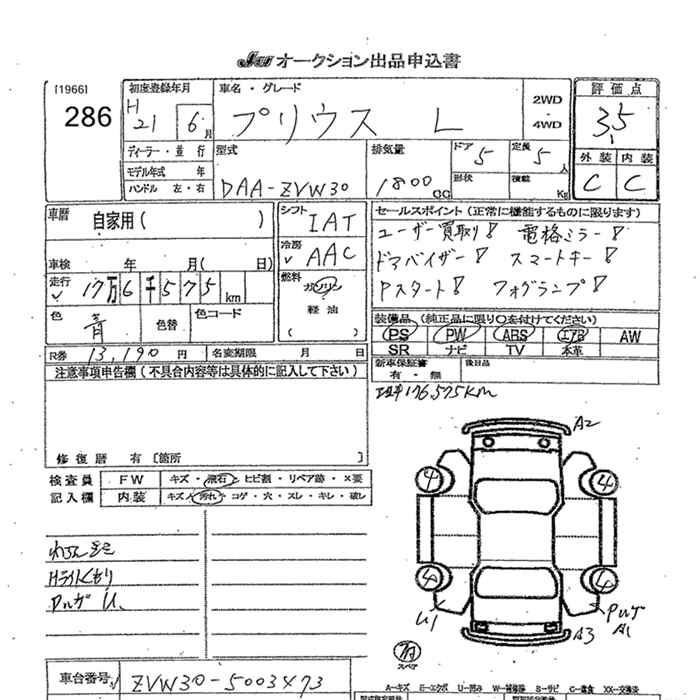 JAA オークション出品申込書
[1966]
286
初度登録年月
H 21 6月
車名・グレード
プリウス L
2WD
4WD
評価点
3.5
外装 内装
C C
ディーラー・並行
モデル年式 年
ハンドル 左・右
型式
DAA-ZVW30
排気量
1800 CC
ドア 5
定員 5人
形状
積載 Kg
車歴
自家用( )
車検 年 月( 日)
走行
17万6千575 km
色 青
色替
色コード
シフト IAT
冷房 AAC
燃料
ガソリン
軽油
( )
セールスポイント(正常に機能するものに限ります)
ユーザー買取り! 電格ミラー!
ドアバイザー! スマートキー!
Pスタート! フォグランプ!
装備品(純正品に限り○を付けてください)
PS PW ABS エアB AW
SR ナビ TV 本革
R券 13,190円
名変期限 月 日
新車保証書
有・無
後日品
注意事項申告欄(不具合内容等は具体的に記入して下さい)
176,575km
修復歴 有[箇所 ]
検査員
記入欄
FW キズ・飛石・ヒビ割・リペア跡・×要
内装 キズ・汚れ・コゲ・穴・スレ・キレ・破レ
Hライトくもり
A2
4 4
4 4
U1
A1
A3
スペア
車台番号 ZVW30-5003473
A…キズ E…エクボ U…凹み W…補修跡 S…サビ C…腐食 XX…交換済